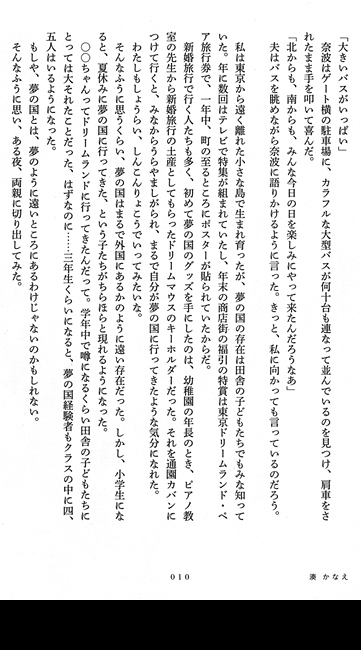 「大きいバスがいっぱい」
　奈波はゲート横の駐車場に、カラフルな大型バスが何十台も連なって並んでいるのを見つけ、肩車をさ
れたまま手を叩いて喜んだ。
「北からも、南からも、みんな今日の日を楽しみにやって来たんだろうなあ」
　夫はバスを眺めながら奈波に語りかけるように言った。きっと、私に向かっても言っているのだろう。
　私は東京から遠く離れた小さな島で生まれ育ったが、夢の国の存在は田舎の子どもたちでもみな知って
いた。年に数回はテレビで特集が組まれていたし、年末の商店街の福引の特賞は東京ドリームランド・ペ
ア旅行券で、一年中、町の至るところにポスターが貼られていたからだ。
　新婚旅行で行く人たちも多く、初めて夢の国のグッズを手にしたのは、幼稚園の年長のとき、ピアノ教
室の先生から新婚旅行の土産としてもらったドリームマウスのキーホルダーだった。それを通園カバンに
つけて行くと、みなからうらやましがられ、まるで自分が夢の国に行ってきたような気分になれた。
　わたしもしょうらい、しんこんりょこうでいってみたいな。
　そんなふうに思うくらい、夢の国はまるで外国にあるかのように遠い存在だった。しかし、小学生にな
ると、夏休みに夢の国に行ってきた、という子たちがちらほらと現れるようになった。
　○○ちゃんってドリームランドに行ってきたんだって。学年中で噂になるくらい田舎の子どもたちに
とっては大それたことだった、はずなのに……三年生くらいになると、夢の国経験者もクラスの中に四、
五人はいるようになった。
　もしや、夢の国とは、夢のように遠いところにあるわけじゃないのかもしれない。
　そんなふうに思い、ある夜、両親に切り出してみた。
010
湊 かなえ